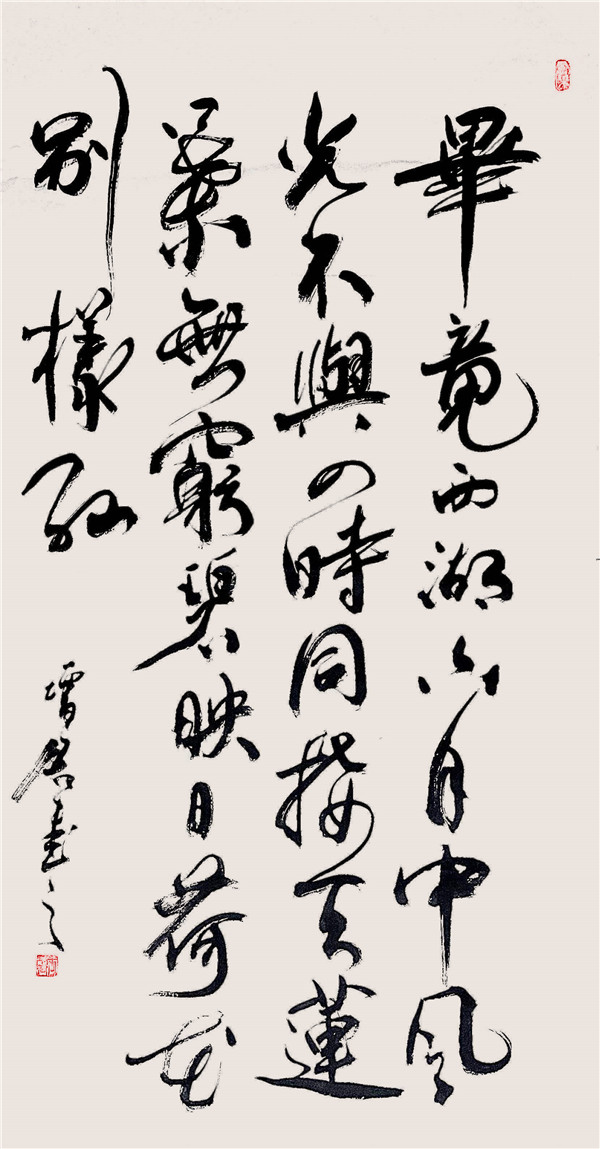 畢竟西湖六月中風
光不與四時同接天蓮
葉無窮碧映日荷花
別樣紅
書之